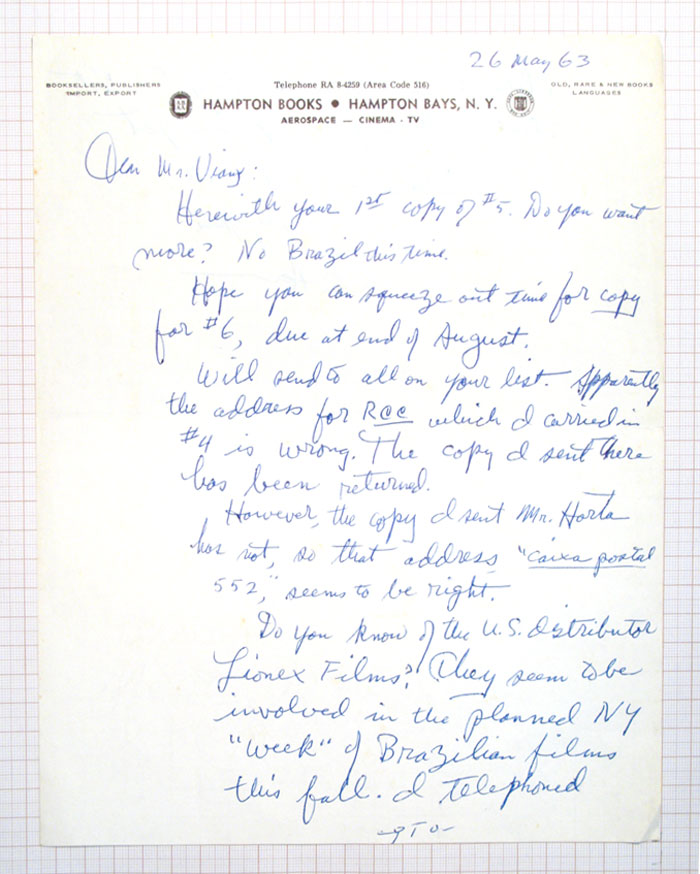 26 May 63
BOOKSELLERS, PUBLISHERS
IMPORT, EXPORT
Telephone RA 8-4259 (Area Code 516)
HAMPTON BOOKS • HAMPTON BAYS, N. Y.
AEROSPACE — CINEMA - TV
OLD, RARE & NEW BOOKS
LANGUAGES
Dear Mr. Viany:
Herewith your 1st copy of #5. Do you want
more? No Brazil this time.
Hope you can squeeze out time for copy
for #6, due at end of August.
Will send to all on your list. Apparently
the address for RCC which I carried in
#4 is wrong. The copy I sent there
has been returned.
However, the copy I sent Mr. Horta
has not, so that address, "caixa postal
552," seems to be right.
Do you know of the U.S. distributor
Lionex Films? They seem to be
involved in the planned NY
"week" of Brazilian films
this fall. I telephoned